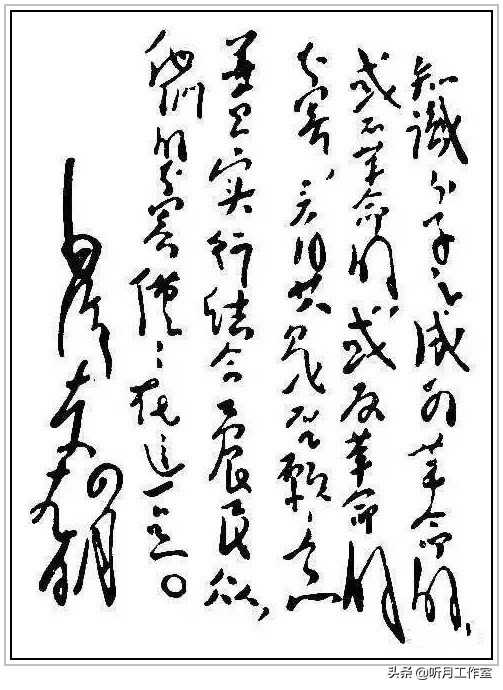 知識分子之成为革命的，
或不革命的或反革命的
分界，其是否願意
並且实行结合工農民众，
他们的分界僅々在这一点。
毛泽东
头条 @听月工作室